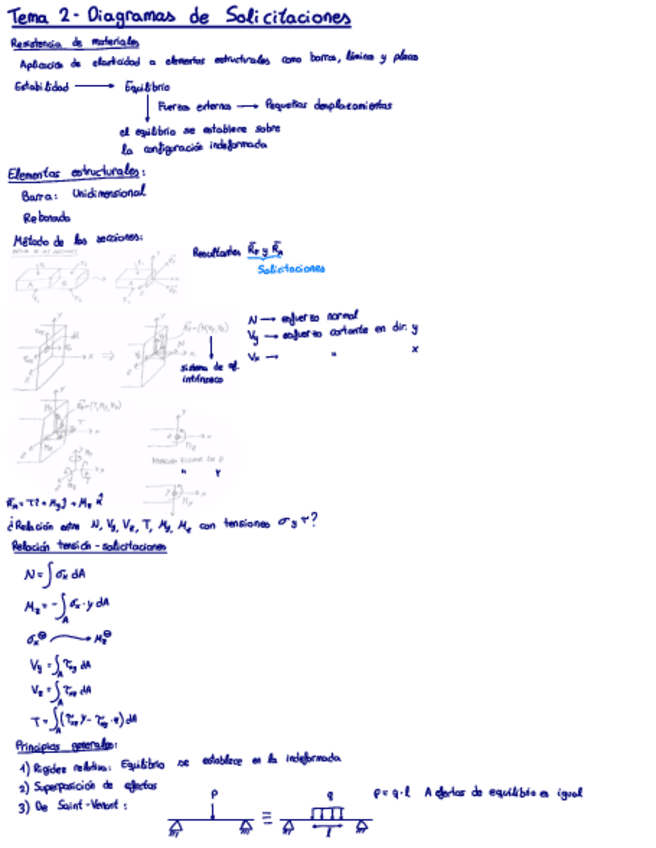 Tema 2 - Diagramas de Solicitaciones
Resistencia de materiales
Aplicación de elasticidad a elementos estructurales como barras, lámina y placas
Estabilidad → Equilibrio
Fuerzas externas → Pequeños desplazamientos
el equilibrio se establece sobre
la configuración indeformada
Elementos estructurales:
Barra: Unidimensional
Rebanada
Método de las secciones:
Resultantes R_F y R_A
Solicitaciones
N → esfuerzo normal
Vy → esfuerzo cortante en dir. y
Vx → " x
sistema de ref.
intrínseco
" Y
¿Relación entre N, Vy, Vz, T, My, Mz con tensiones σ y τ?
Relación tensión - solicitaciones
N = ∫ σx dA
Mz = - ∫A σx · y dA
σx⊖ → Mz⊖
Vy = ∫A τxy dA
Vz = ∫A dA
T = ∫A
Principios generales:
1) Rigidez relativa: Equilibrio se establece en la indeformada
2) Superposición de efectos
3) De Saint-Venant:
P = q P = q · l A efectos de equilibrio es igual
l